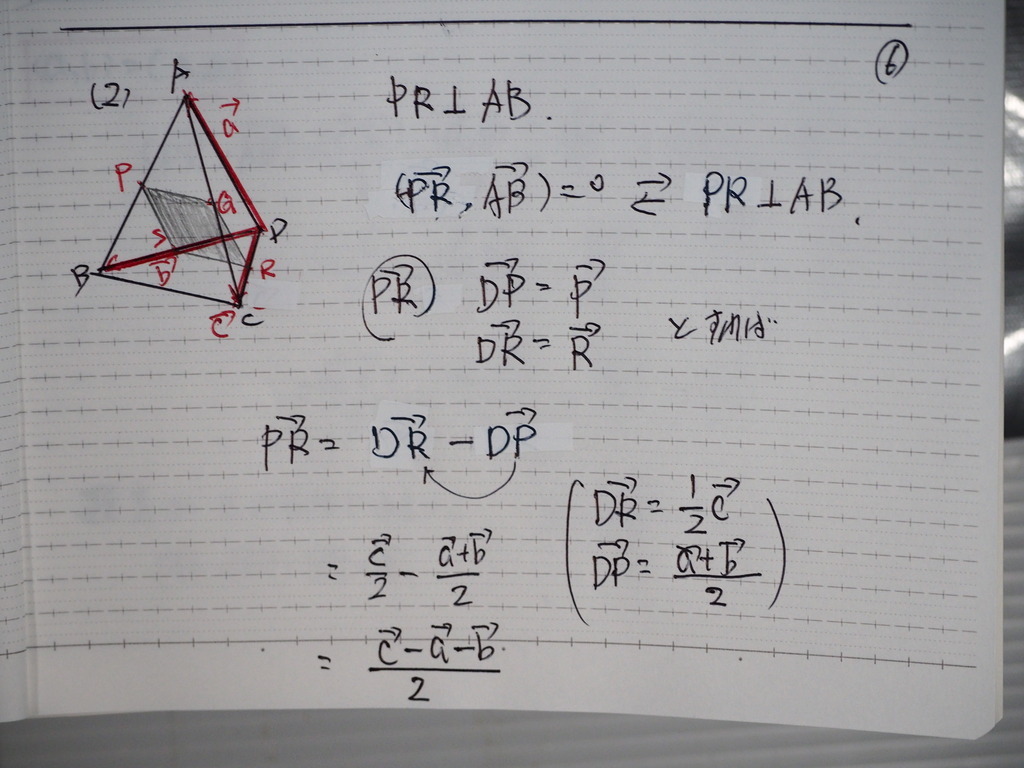 ⑥
(2)
A
a⃗
P
Q
D
B
b⃗
R
c⃗ C
PR⊥AB.
(PR⃗, AB⃗)=0 ⇄ PR⊥AB.
PR⃗ DP⃗ = P⃗
DR⃗ = R⃗ とすれば…
PR⃗ = DR⃗ − DP⃗
= c⃗/2 − (a⃗+b⃗)/2
(DR⃗ = 1/2 c⃗
DP⃗ = (a⃗+b⃗)/2)
= (c⃗−a⃗−b⃗)/2